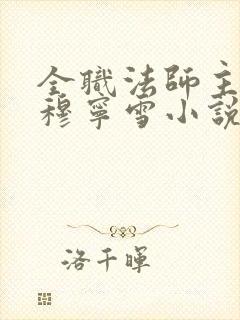 全職法師主
穆寧雪小說
洛千暉